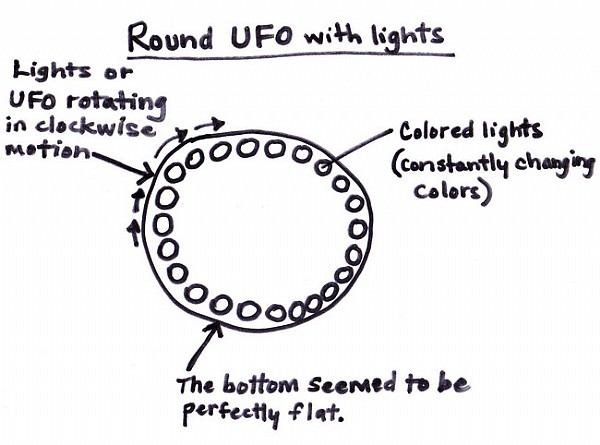 Round UFO with lights
Lights or
UFO rotating
in clockwise
motion
Colored lights
(constantly changing
colors)
The bottom seemed to be
perfectly flat.